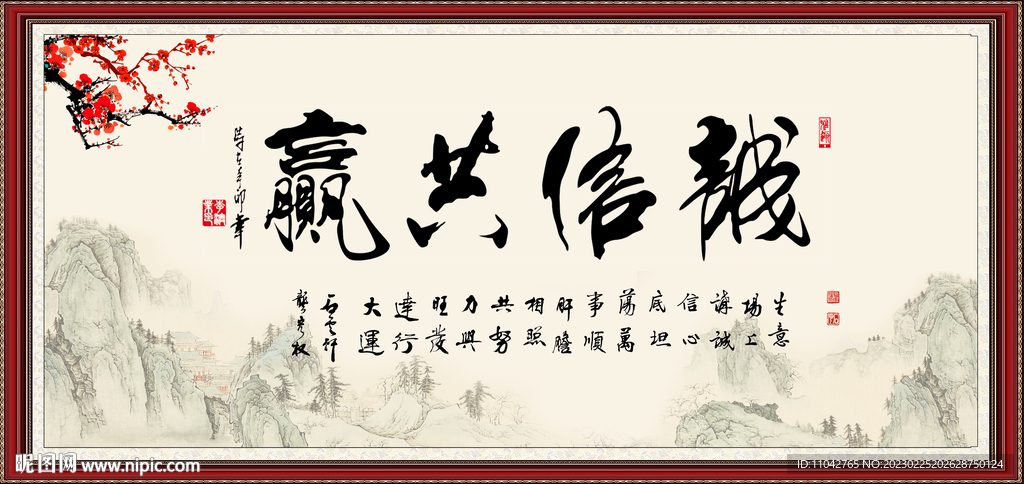 誠信共贏
生意
場上
講誠
信心
底坦
蕩萬
事順
肝膽
相照
共努
力興
旺發
達行
大運
昵图网 www.nipic.com
ID:11042765 NO:20230225202628750124